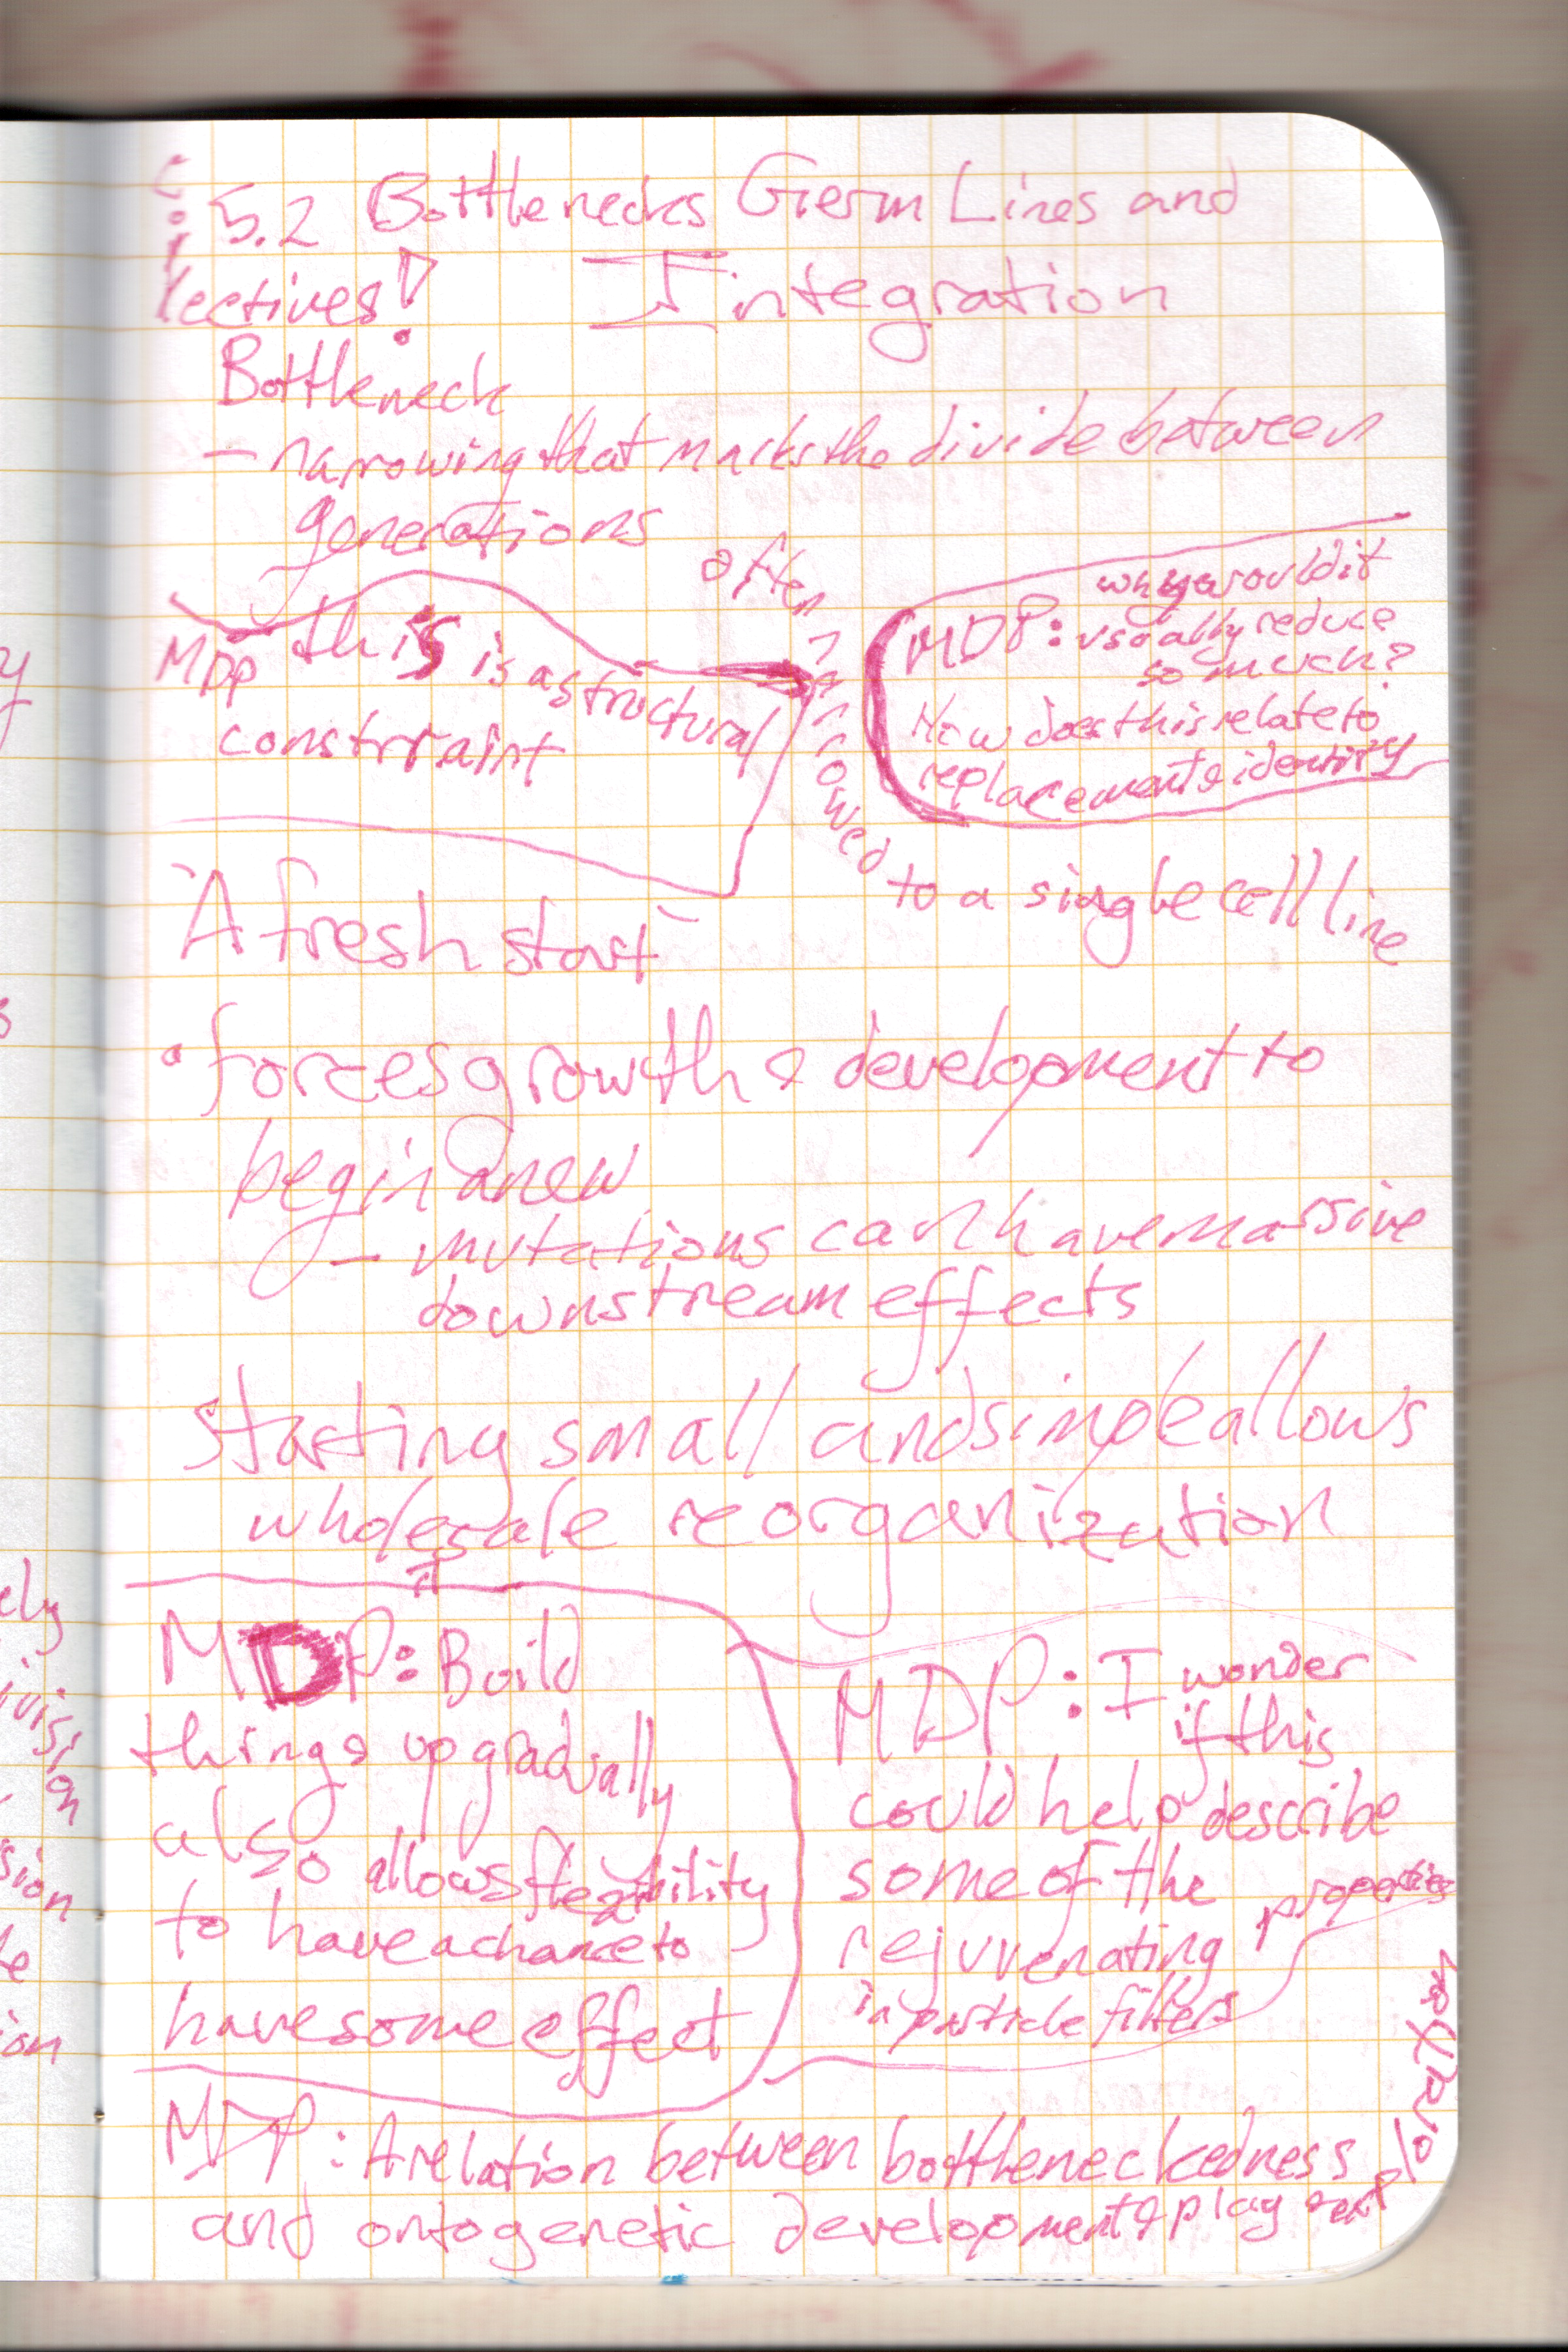 5.2 Bottlenecks Germ Lines and
Collectives! Integration
Bottleneck
- narrowing that marks the divide between
generations
often
narrowed
to a single cell line
MDP this is a structural
constrraint
MDP: why would it
usually reduce
so much?
How does this relate to
replacement & identity
"A fresh start"
• forces growth & development to
begin anew
- mutations can have massive
downstream effects
starting small and simple allows
wholesale reorganization
MDP: Build
things up gradually
also allows flexibility
to have a chance to
have some effect
MDP: I wonder
if this
could help describe
some of the
rejuvenating properties
in particle filters
MDP: A relation between bottleneckedness
and ontogenetic development & play and